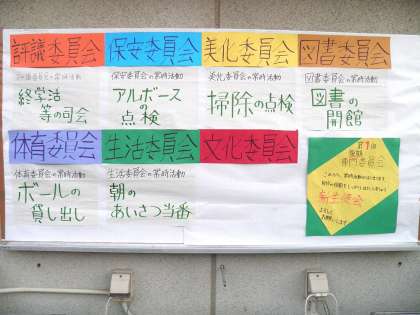 評議委員会
保安委員会
美化委員会
図書委員会
評議委員会の常時活動
保安委員会の常時活動
美化委員会の常時活動
図書委員会の常時活動
終学活
等の司会
アルボース
の点検
掃除の点検
図書の
開館
体育委員会
生活委員会
文化委員会
体育委員会の常時活動
生活委員会の常時活動
ボールの
貸し出し
朝の
あいさつ当番
第1回
専門委員会
新生徒会